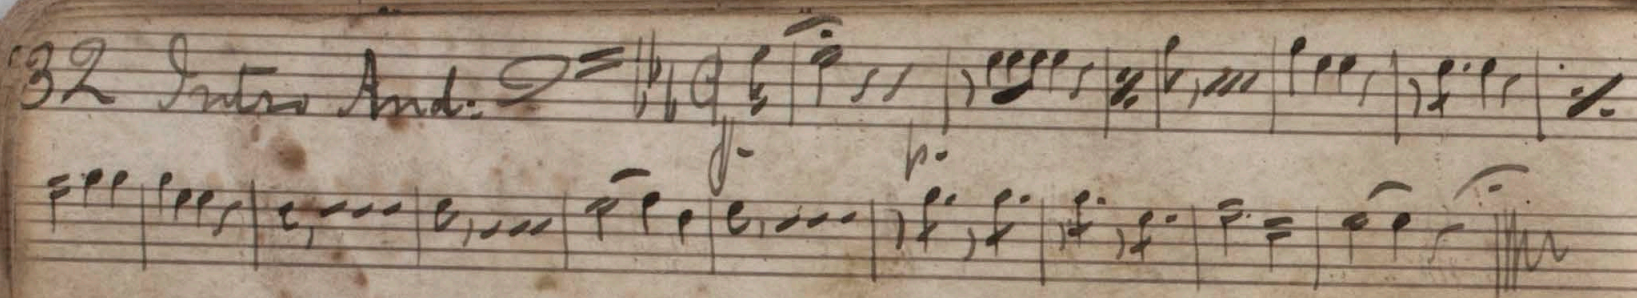 32 Intro And:
f. p.